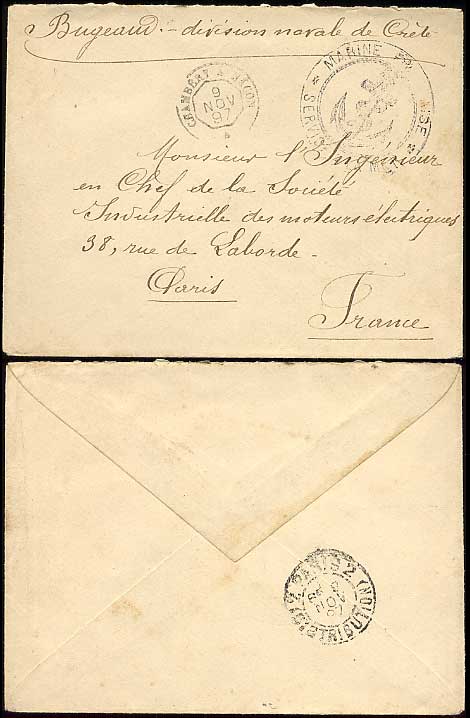 Bugeaud - division navale de Crète
MARINE FRANÇAISE * SERVICE
CHAMBÉRY A MACON
9
NOV
97
Monsieur l'Ingénieur
en Chef de la Société
Industrielle des moteurs électriques
38, rue de Laborde -
Paris
France
PARIS 2
9
NOV
97
DISTRIBUTION